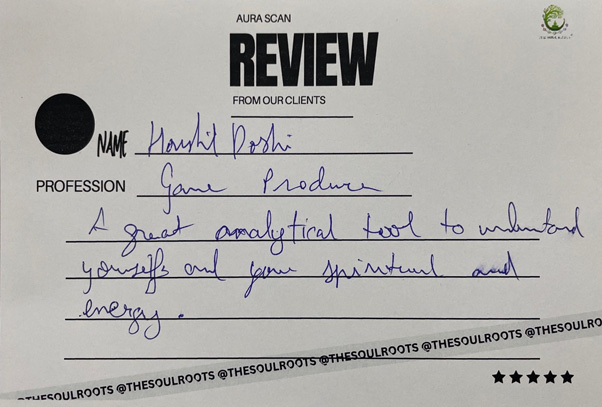 AURA SCAN
REVIEW
FROM OUR CLIENTS
NAME Harshit Doshi
PROFESSION Game Producer
A great analytical tool to understand
yourselfs and your spiritual and
energy.
@THESOULROOTS @THESOULROOTS @THESOULROOTS @THESOULROOTS @THESOULROOTS @THESOULROOTS